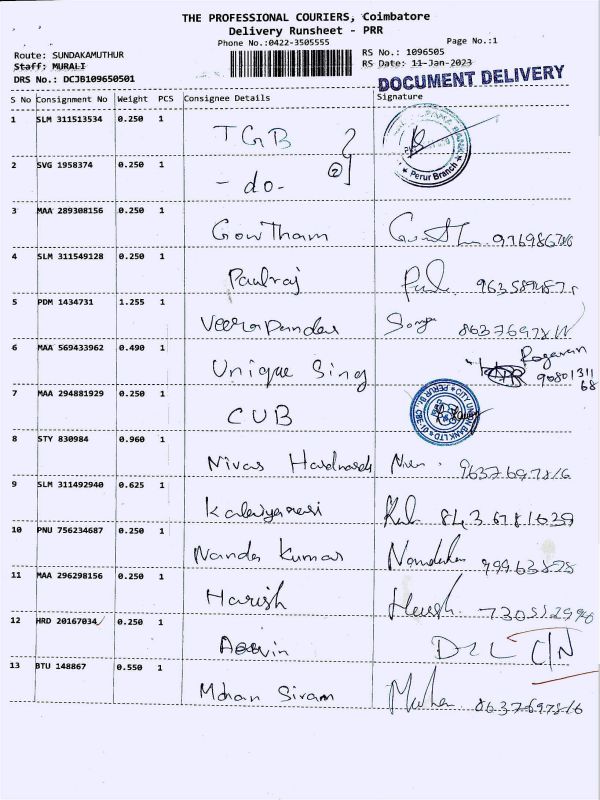 THE PROFESSIONAL COURIERS, Coimbatore
Delivery Runsheet - PRR
Phone No.:0422-3505555
Page No.:1
Route: SUNDAKAMUTHUR
RS No.: 1096505
Staff: MURALI
RS Date: 11-Jan-2023
DRS No.: DCJB109650501
DOCUMENT DELIVERY
S No Consignment No Weight PCS Consignee Details Signature
1 SLM 311513534 0.250 1 TGB
Perur Branch
2 SVG 1958374 0.250 1 -do- 2
3 MAA 289308156 0.250 1 Gowtham
4 SLM 311549128 0.250 1 Paulraj
5 PDM 1434731 1.255 1 Veerapandas
6 MAA 569433962 0.490 1 Unique Sing Rogavan
90801311
68
7 MAA 294881929 0.250 1 CUB
CITY UNION BANK LTD
8 STY 830984 0.960 1 Nivas
9 SLM 311492940 0.625 1
10 PNU 756234687 0.250 1 Nanda Kumar
11 MAA 296298156 0.250 1 Harish
12 HRD 20167034 0.250 1
13 BTU 148867 0.550 1 Mohan Sivam 8637697816